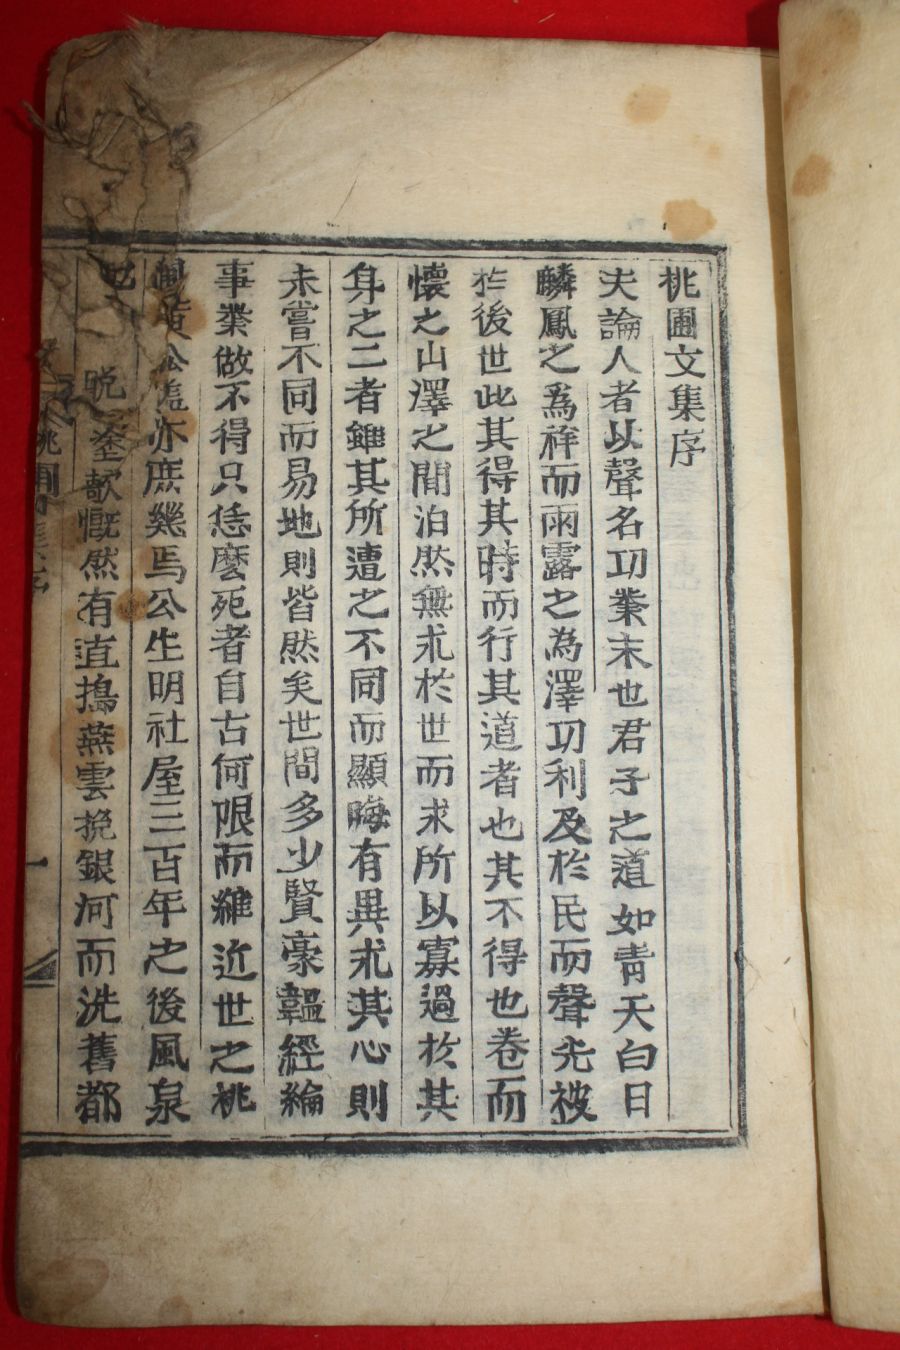 桃圃文集序
夫論人者以聲名功業末也君子之道如靑天白日
麟鳳之爲祥而雨露之為澤功利及於民而聲光被
於後世此其得其時而行其道者也其不得也卷而
懷之山澤之間泊然無求於世而求所以寡過於其
身之二者雖其所遭之不同而顯晦有異求其心則
未嘗不同而易地則皆然矣世間多少賢豪韞經綸
事業做不得只恁麽死者自古何限而雖近世之桃
圃黃公 亦庶幾焉公生明社屋三百年之後風泉
晩 歔慨然有直搗燕雲挽銀河而洗舊都
桃圃 集序
一